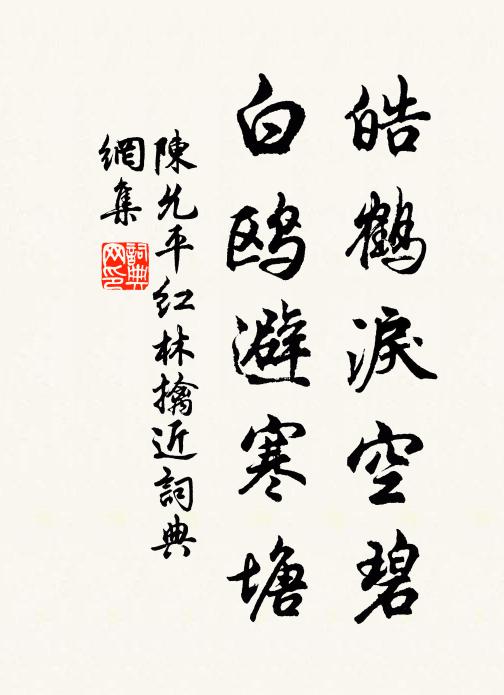 皓鶴淚空碧
白鸥避寒塘
陳允平红林擒近詞典
網集
詞典网印